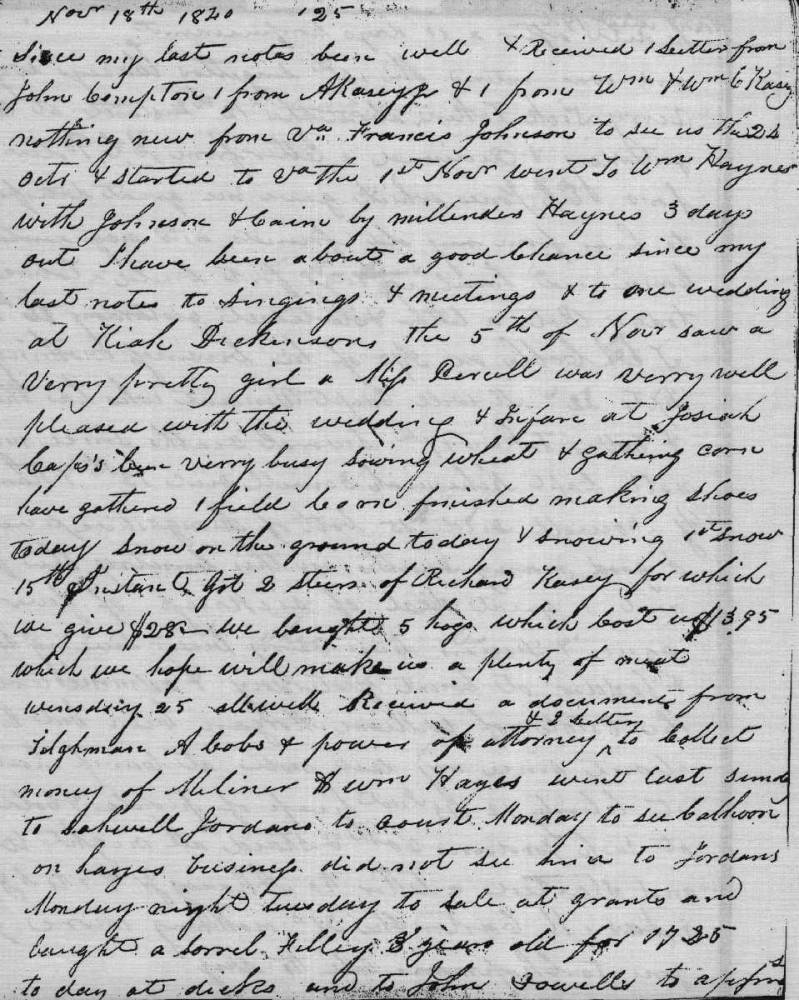 Novr 18th 1840 125
Since my last notes been well & Received 1 Letter from
John Compton 1 from A Kasey & 1 from Wm & Wm C Kasey
nothing new from Va. Francis Johnson to see us the 24
Octr & started to Va the 1st Novr went To Wm Haynes
with Johnson & Cain by millenders Haynes 3 days
out I have been about a good Chance since my
last notes to Singings & meetings & to one wedding
at Kiah Dickensons the 5th of Novr saw a
Verry pretty girl a Miss was verry well
pleased with the wedding & Infare at Josiah
been verry busy Sowing wheat & gathing corn
have gathered 1 field Corn finished making Shoes
today Snow on the ground today & Snowing 1st Snow
15th Instant Got 2 steers of Richard Kasey for which
we give $28 we bought 5 hogs which Cost us $13.95
which we hope will make us a plenty of meat
wensday 25 all well Received a document from
& 2 Letters
Tilghman A Cobs & power of attorney ^ to Collect
money of Miliner & wm Hayes went Last
to Sakwell Jordans to Court Monday to see Calhoon
on hayes business did not see him to Jordans
Monday night tuesday to sale at grants and
bought a Sorrel Filley 3 years old for 17 25
to day at dicks and to John to